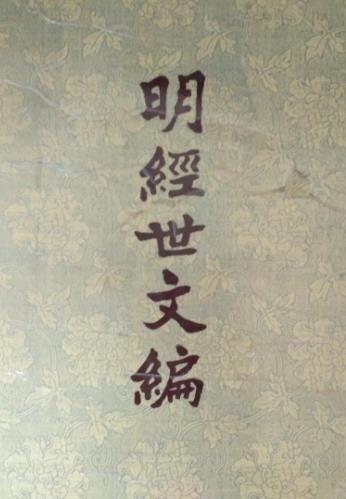 明經世文編